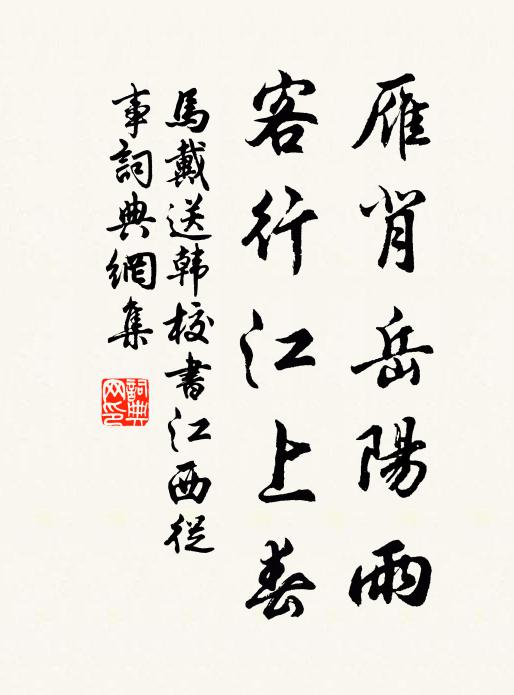 雁背岳陽雨
客行江上春
馬戴送韩校書江西從
事詞典網集
詞典
网印